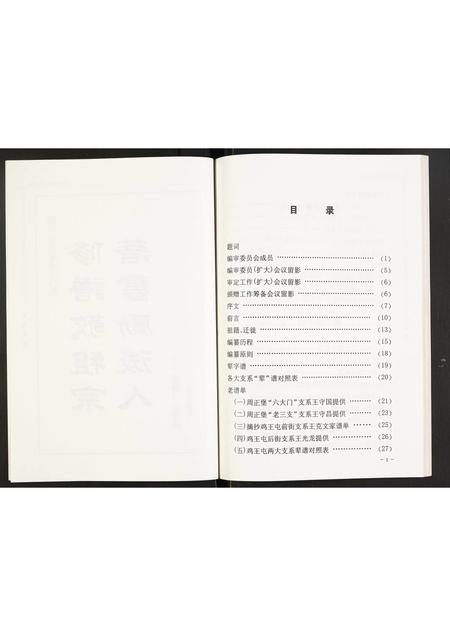 目 录
题词
编审委员会成员 ……………………………… (1)
编审委员(扩大)会议留影 ……………………… (5)
审定工作(扩大)会议留影 ……………………… (6)
颁赠工作筹备会议留影 ……………………… (6)
序文 ……………………………………… (7)
前言 ……………………………………… (10)
祖籍、迁徙 ………………………………… (13)
编纂历程 …………………………………… (15)
编纂原则 …………………………………… (18)
辈字谱 ……………………………………… (19)
各大支系“辈”谱对照表 ……………………… (20)
老谱单
(一)周正堡“六大门”支系王守国提供 ……… (21)
(二)周正堡“老三支”支系王守昌提供 ……… (23)
(三)摘抄鸡王屯前街支系王克文家谱单 …… (25)
(四)鸡王屯后街支系王光龙提供 …………… (26)
(五)鸡王屯两大支系辈谱对照表 …………… (27)
- 1 -